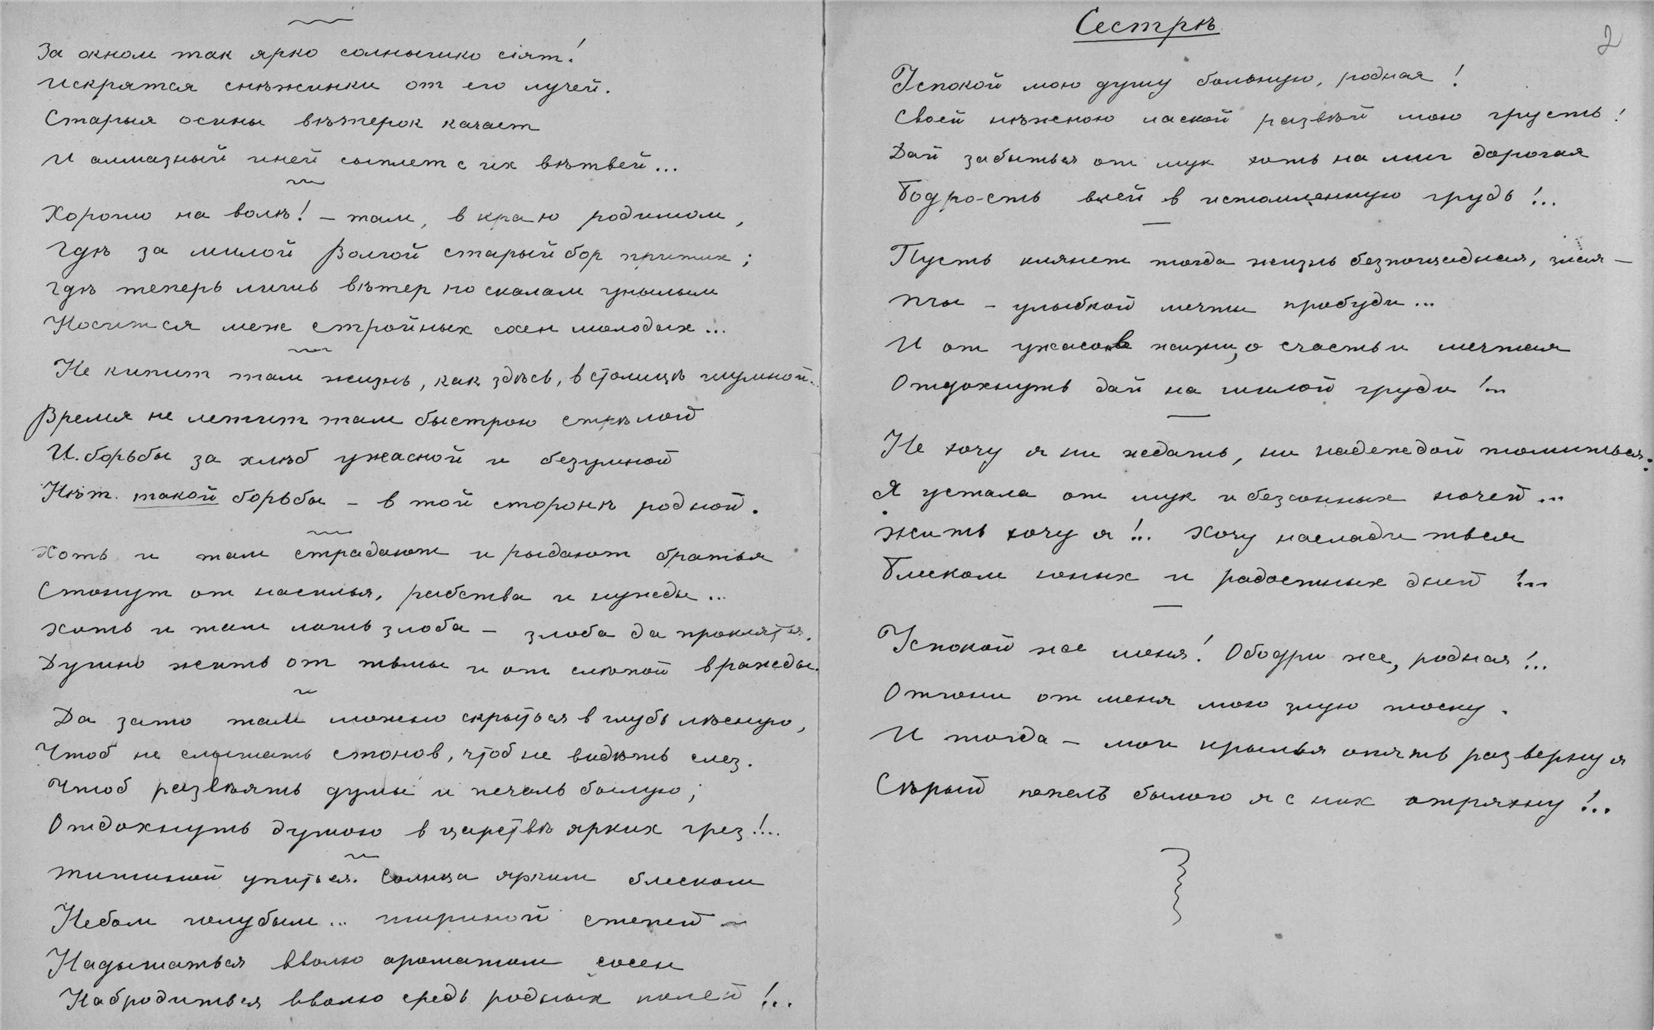 За окном так ярко солнышко сіят!
Искрятся снѣжинки от его лучей.
Старыя осины вѣтерок качает
И алмазный иней сыплет с их вѣтвей...
Хорошо на волѣ! – там, в краю родимом,
Гдѣ за милой Волгой старый бор притих;
Гдѣ теперь лишь вѣтер по скалам унылым
Носится меж стройных сосен молодых...
Не кипит там жизнь, как здѣсь, в столицѣ шумной..
Время не летит там быстрою стрѣлой
И. борьбы за хлѣб ужасной и безумной
Нѣт. такой борьбы – в той сторонѣ родной.
Хоть и там страдают и рыдают братья
Стонут от насилья, рабства и нужды...
Хоть и там лишь злоба – злоба да проклятья.
Душно жить от тьмы и от слѣпой вражды.
Да зато там можно скрыться в глубь лѣсную,
Чтоб не слышать стонов, чтоб не видѣть слез.
Чтоб развѣять думы и печаль былую;
Отдохнуть душою в царствѣ ярких грез!...
Тишиной упиться. Солнца ярким блеском
Небом голубым... шириной степей –
Надышаться вволю ароматом сосен
Набродиться вволю средь родных полей!..
Сестрѣ
2
Успокой мою душу больную, родная!
Своей нѣжною лаской развѣй мою грусть!
Дай забыться от мук хоть на миг дорогая
Бодрость влей в истомленную грудь!..
Пусть клянет тогда жизнь безпощадная, злая –
Ты – улыбкой мечты пробуди...
И от ужасов жизни, о счастьи мечтая
Отдохнуть дай на милой груди!...
Не хочу я ни ждать, ни надеждой томиться:
Я устала от мук и безсонных ночей...
Жить хочу я!.. Хочу насладиться
Блеском юных и радостных дней!...
Успокой же меня! Ободри же, родная!..
Отгони от меня мою злую тоску.
И тогда – мои крылья опять разверну я
Сѣрый пепел былого я с них отряхну!..